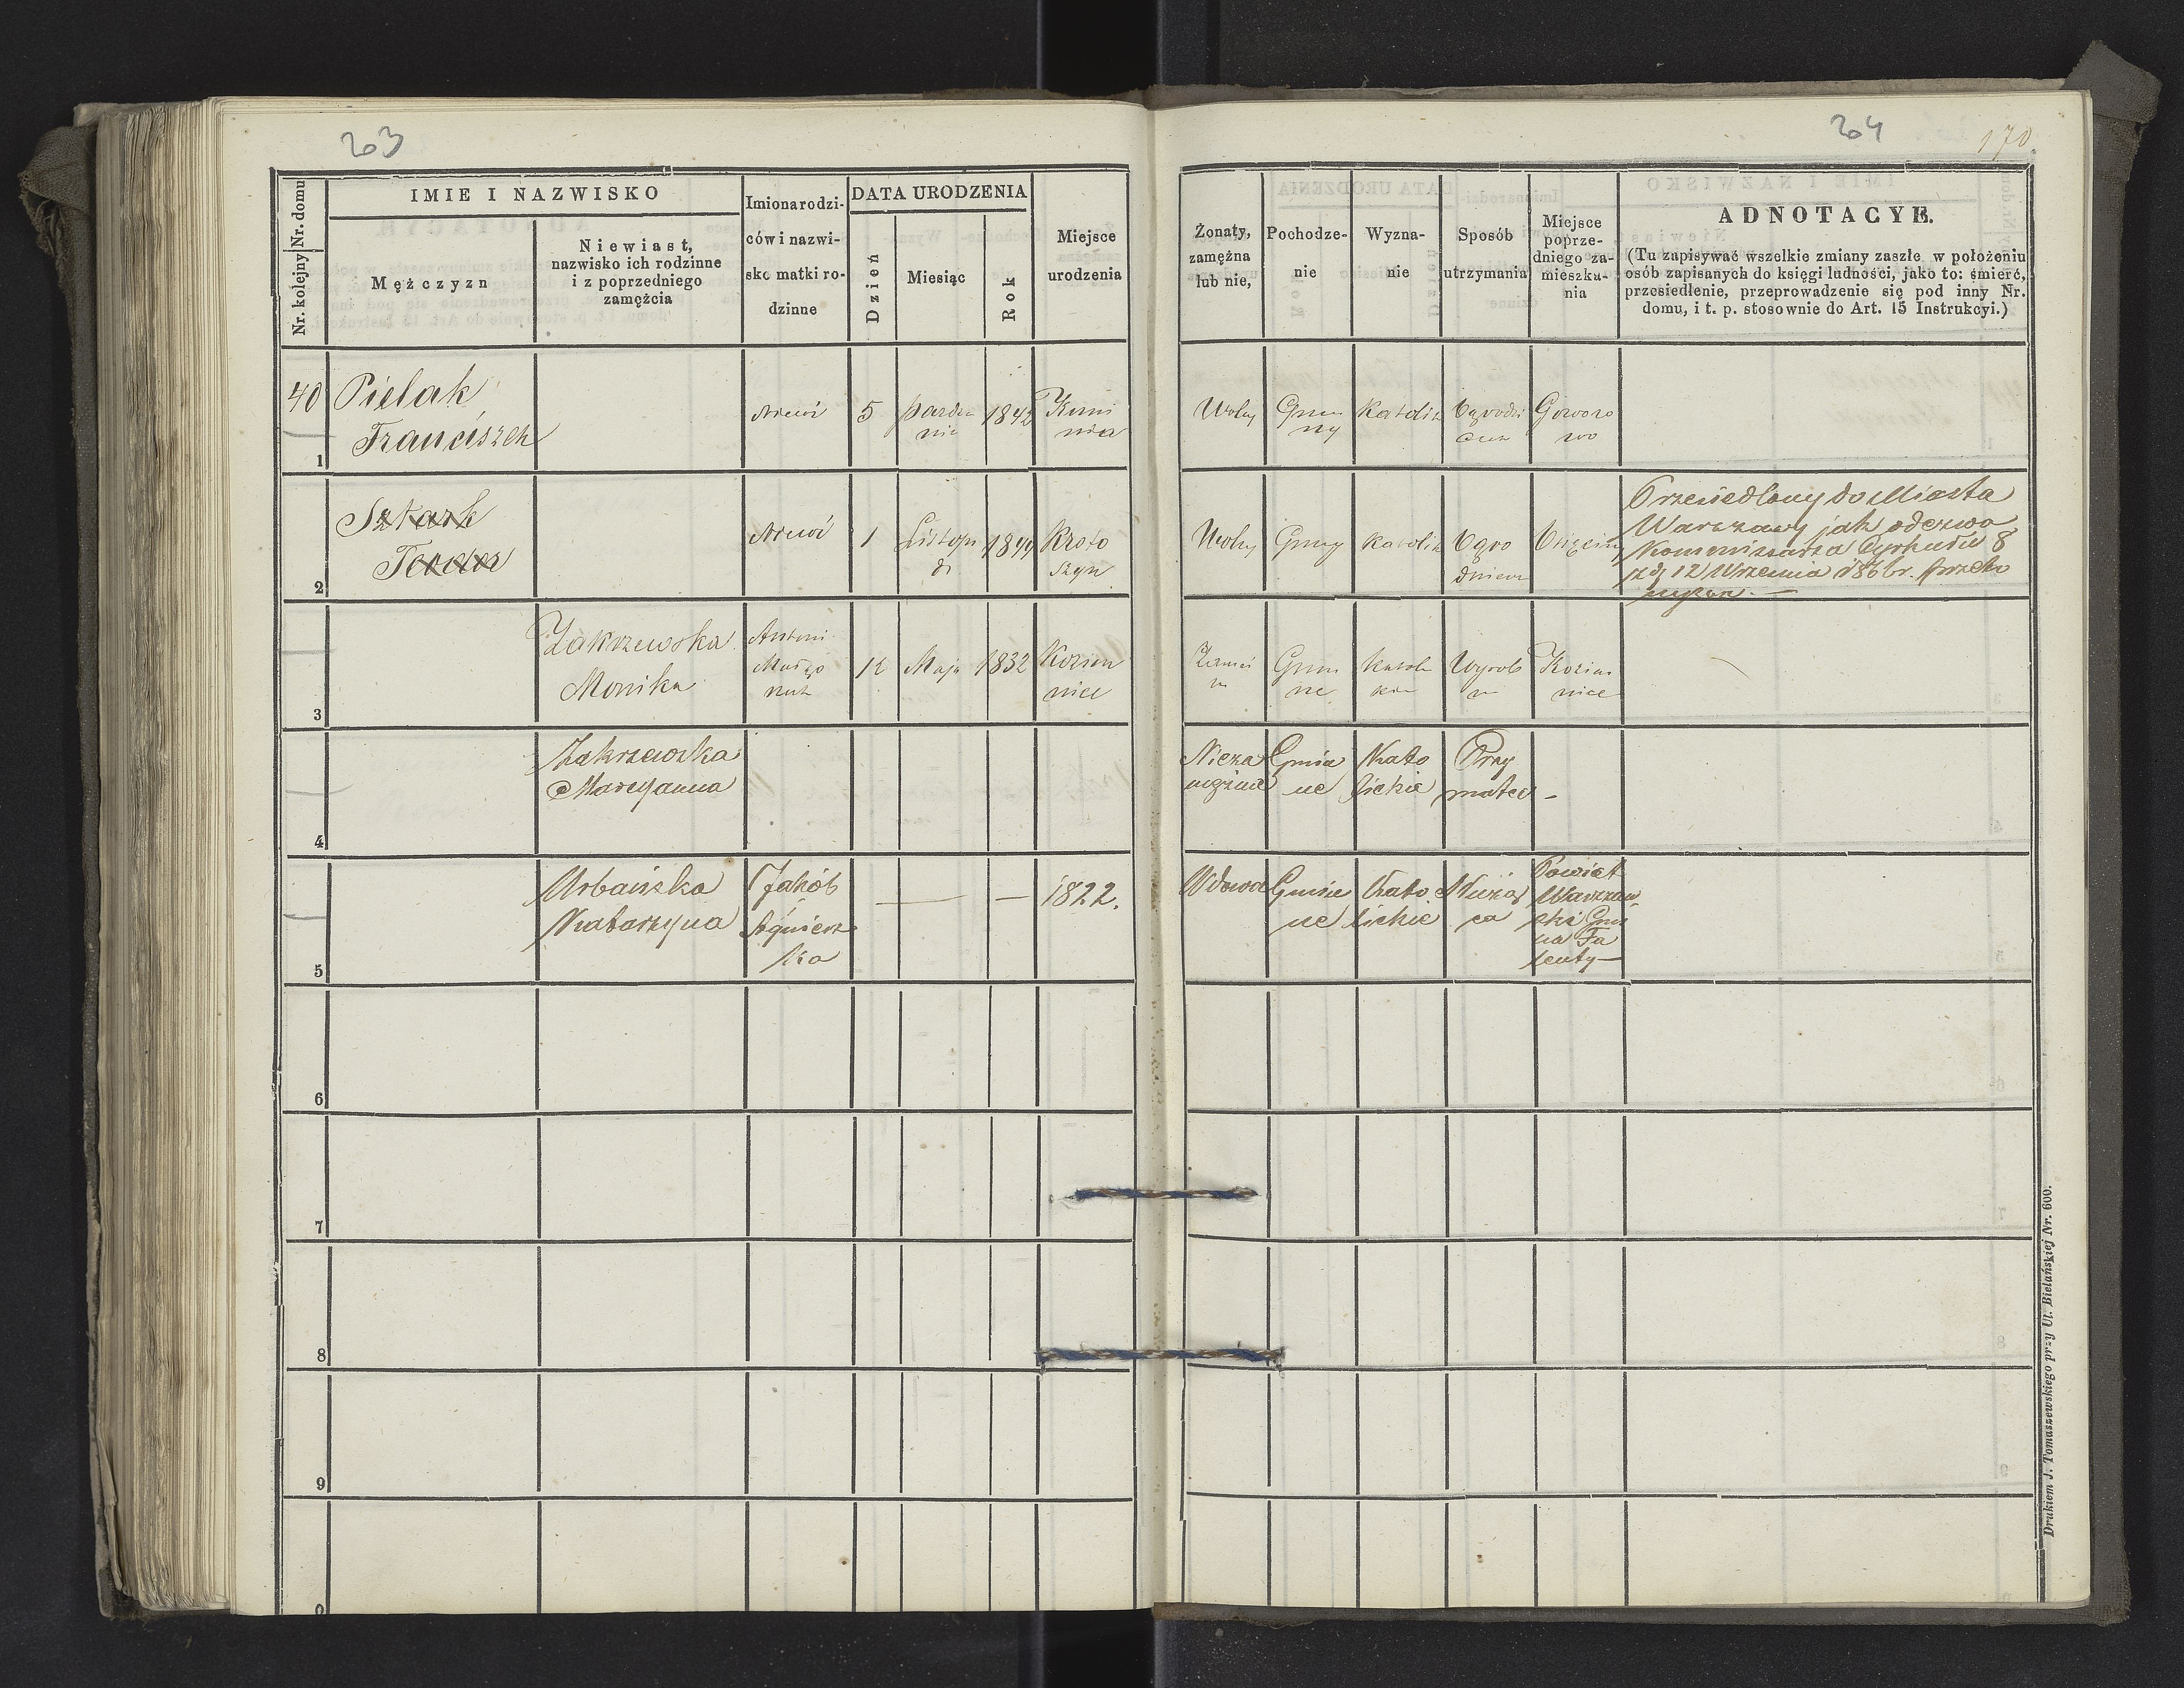 203
204
170
Nr. kolejny Nr. domu
IMIE I NAZWISKO
Mężczyzn
Niewiast,
nazwisko ich rodzinne
i z poprzedniego
zamężcia
Imiona rodzi-
ców i nazwi-
sko matki ro-
dzinne
DATA URODZENIA
Dzień
Miesiąc
Rok
Miejsce
urodzenia
Żonaty,
zamężna
lub nie,
Pochodze-
nie
Wyzna-
nie
Sposób
utrzymania
Miejsce
poprze-
dniego za-
mieszka-
nia
ADNOTACYE.
(Tu zapisywać wszelkie zmiany zaszłe w położeniu
osób zapisanych do księgi ludności, jako to: śmierć,
przesiedlenie, przeprowadzenie się pod inny Nr.
domu, i t. p. stosownie do Art. 15 Instrukcyi.)
40
1
Pielak
Franciszek
5
1842
Wolny
Gmi
ny
Katolik
Goworo
wo
2
Sztark
Teodor
1
Listopa
d
Kroto
szyn
Wolny
Gminy
Katolik
Ogro
Przesiedlony do Miasta
Warszawy jak odezwa
Kommissarza Cyrkułu 8
z d. 12 Września
3
Zakrzewska
Monika
Antoni
12
Maja
1832
Kozien
nice
Gmin
ne
Katoli
Wyrob
Kozie
nice
4
Zakrzewska
Maryanna
Nieza
mężna
Gmin
ne
Kato
lickie
Przy
matce
5
Urbańska
Katarzyna
Jakób
Agniesz
ka
— — 1822.
Wdowa
Gmin
ne
Kato
lickie
Służą
ca
Powiat
Warszaw
ski Gmi
na Fa
lenty—
6
7
8
9
Drukiem J. Tomaszewskiego przy Ul. Bielańskiej Nr. 600.